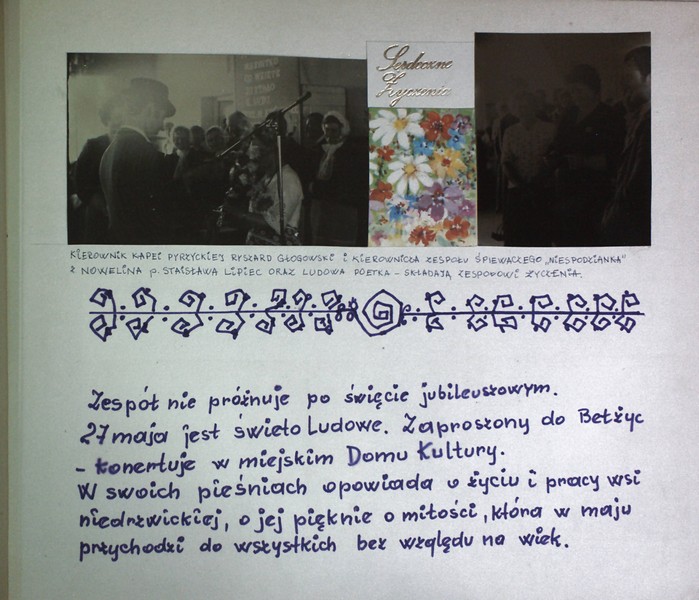 Serdeczne
Życzenia
KIEROWNIK KAPELI PYRZYCKIEJ RYSZARD GŁOGOWSKI I KIEROWNICZA ZESPOŁU ŚPIEWACZEGO „NIESPODZIANKA"
Z NOWELINA p. STAISŁAWA LIPIEC ORAZ LUDOWA POETKA – SKŁADAJĄ ZESPOŁOWI ŻYCZENIA.
Zespół nie próżnuje po święcie jubileuszowym.
27 maja jest świeto Ludowe. Zaproszony do Bełżyc
– konertuje w miejskim Domu Kultury.
W swoich pieśniach opowiada o życiu i pracy wsi
niedrzwickiej, o jej pięknie o miłości, która w maju
przychodzi do wszystkich bez względu na wiek.